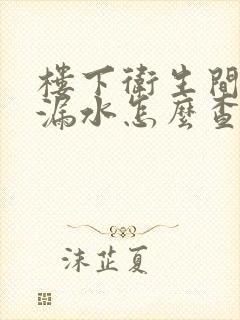 樓下衛生間
漏水怎麼查
沫芷夏